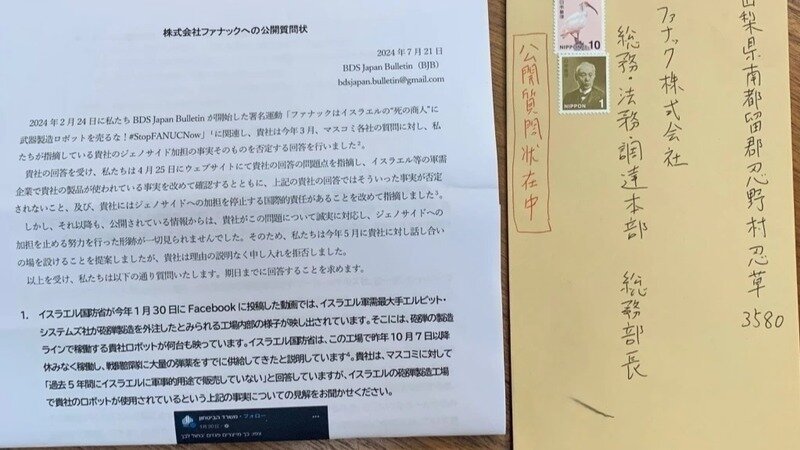 株式会社ファナックへの公開質問状
2024年7月21日
BDS Japan Bulletin（BJB）
bdsjapan.bulletin@gmail.com
2024年2月24日に私たち BDS Japan Bulletin が開始した署名運動「ファナックはイスラエルの"死の商人"に
武器製造ロボットを売るな！#StopFANUCNow」¹に関連し、貴社は今年3月、マスコミ各社の質問に対し、私
たちが指摘している貴社のジェノサイド加担の事実そのものを否定する回答を行いました²。
貴社の回答を受け、私たちは4月25日にウェブサイトにて貴社の回答の問題点を指摘し、イスラエル等の軍需
企業で貴社の製品が使われている事実を改めて確認するとともに、上記の貴社の回答ではそういった事実が否定
されないこと、及び、貴社にはジェノサイドへの加担を停止する国際的責任があることを改めて指摘しました³。
しかし、それ以降も、公開されている情報からは、貴社がこの問題について誠実に対応し、ジェノサイドへの
加担を止める努力を行った形跡が一切見られませんでした。そのため、私たちは今年5月に貴社に対し話し合い
の場を設けることを提案しましたが、貴社は理由の説明なく申し入れを拒否しました。
以上を受け、私たちは以下の通り質問いたします。期日までに回答することを求めます。
1. イスラエル国防省が今年1月30日に Facebook に投稿した動画では、イスラエル軍需最大手エルビット・
システムズ社が砲弾製造を外注したとみられる工場内部の様子が映し出されています。そこには、砲弾の製造
ラインで稼働する貴社ロボットが何台も映っています。イスラエル国防省は、この工場で昨年10月7日以降
休みなく稼働し、戦闘部隊に大量の弾薬をすでに供給してきたと説明しています⁴。貴社は、マスコミに対して
「過去5年間にイスラエルに軍事的用途で販売していない」と回答していますが、イスラエルの砲弾製造工場
で貴社のロボットが使用されているという上記の事実についての見解をお聞かせください。
משרד הביטחון · フォロー
1月30日
山梨県南都留郡忍野村忍草
3580
ファナック株式会社
総務・法務調達本部 総務部長
公開質問状在中
日本郵便
NIPPON 10
NIPPON 1